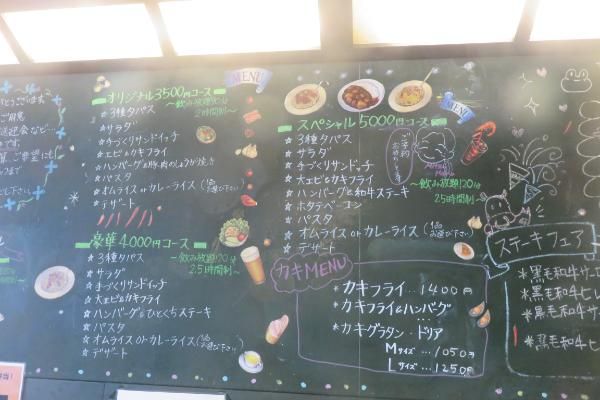 オリジナル3500円コース
MENU
〜飲み放題90分
2時間制〜
★3種タパス
★サラダ
★手づくりサンドイッチ
★エビ&カキフライ
★パスタ
★オムライス or カレーライス(1品お選び下さい)
★デザート
豪華4000円コース
〜飲み放題120分
2.5時間制〜
★3種タパス
★サラダ
★手づくりサンドイッチ
★大エビ&カキフライ
★ハンバーグ&ひとくちステーキ
★パスタ
★オムライス or カレーライス(1品お選び下さい)
★デザート
MENU
スペシャル5000円コース
★3種タパス
★サラダ
★手づくりサンドイッチ
★大エビ&カキフライ
★ハンバーグ&和牛ステーキ
★ホタテベーコン
★パスタ
★オムライス or カレーライス(1品お選び下さい)
★デザート
〜飲み放題120分
2.5時間制〜
カキMENU
*カキフライ…1400円
*カキフライ&ハンバーグ
*カキグラタン・ドリア
Mサイズ…1050円
Lサイズ…1250円
ステーキフェア
*黒毛和牛サーロ
*黒毛和牛ヒレ
*黒毛和牛サー
*黒毛和牛ヒ